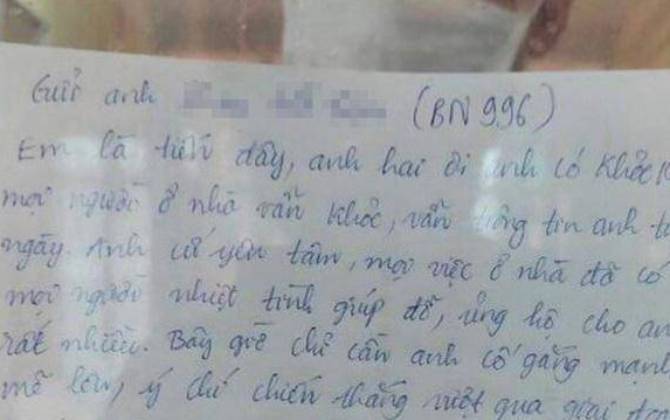 Gửi anh (BN 996)
Em là tiến đây, anh hai ơi anh có khỏe k
mọi người ở nhà vẫn khỏe, vẫn trông tin anh từ
ngày. Anh cứ yên tâm, mọi việc ở nhà đã có
mọi người nhiệt tình giúp đỡ, ủng hộ cho an
rất nhiều. Bây giờ chỉ cần anh cố gắng mạnh
mẽ lên, ý chí chiến thắng vượt qua giai